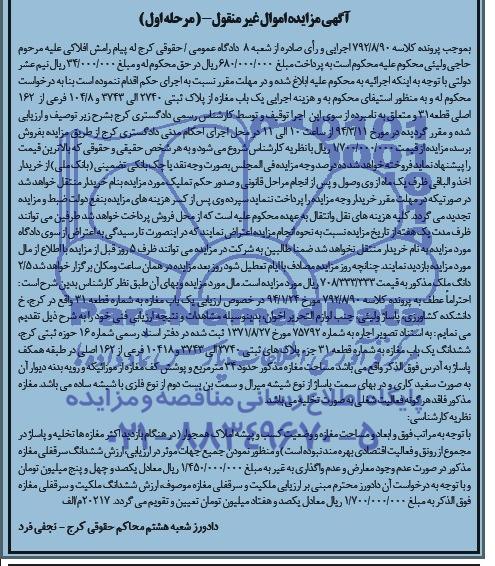 آگهی مزایده اموال غیر منقول - (مرحله اول)
بموجب پرونده کلاسه ۷۹۲/۸/۹۰ اجرایی و رأی صادره از شعبه ۸ دادگاه عمومی / حقوقی کرج له پیام رامش افلاکی علیه مرحوم
حاجی ولیئی محکوم علیه محکوم است به پرداخت مبلغ ۶۸۰/۰۰۰/۰۰۰ ریال در حق محکوم له و مبلغ ۳۴/۰۰۰/۰۰۰ ریال نیم عشر
دولتی با توجه به اینکه اجرائیه به محکوم علیه ابلاغ شده و در مهلت مقرر نسبت به اجرای حکم اقدام ننموده است بنا به درخواست
محکوم له و به منظور استیفای محکوم به و هزینه اجرایی یک باب مغازه از پلاک ثبتی ۲۷۴۰ الی ۳۷۴۳ و ۱۰۴/۸ فرعی از ۱۶۲
اصلی قطعه ۳۱ و متعلق به نامبرده از سوی این اجرا توقیف و توسط کارشناس رسمی دادگستری کرج بشرح زیر توصیف و ارزیابی
شده و مقرر گردیده در مورخ ۹۴/۳/۱۱ از ساعت ۱۰ الی ۱۱ در محل اجرای احکام مدنی دادگستری کرج از طریق مزایده بفروش
برسد مزایده از قیمت ۱/۷۰۰/۰۰۰/۰۰۰ ریال با نظریه کارشناس شروع می شود و به هر شخص حقیقی و حقوقی که بالاترین قیمت
را پیشنهاد نماید فروخته خواهد شد ده درصد وجه مزایده فی المجلس بصورت وجه نقد یا چک بانکی تضمینی (بانک ملی) از خریدار
اخذ و الباقی ظرف یک ماه از وی وصول و پس از انجام مراحل قانونی و صدور حکم تملیک مورد مزایده بنام خریدار منتقل خواهد شد
در صورتیکه در مهلت مقرر خریدار وجه مزایده را پرداخت ننماید سپرده وی پس از کسر هزینه های مزایده بنفع دولت ضبط و مزایده
تجدید می گردد. کلیه هزینه های نقل و انتقال به عهده محکوم علیه است که از محل فروش پرداخت خواهد شد طرفین می توانند
ظرف مدت یک هفته از تاریخ مزایده نسبت به نحوه انجام مزایده اعتراض نمایند که در اینصورت تا رسیدگی به اعتراض از سوی دادگاه
مورد مزایده به نام خریدار منتقل نخواهد شد ضمنا طالبین به شرکت در مزایده می توانند ظرف ۵ روز قبل از مزایده با اطلاع از مال
مورد مزایده بازدید نمایند. چنانچه روز مزایده مصادف با ایام تعطیل شود روز بعد مزایده در همان ساعت و مکان برگزار خواهد شد ۲/۵
دانگ ملک مذکور به قیمت ۷۰۸/۳۳۳/۳۳۳ ریال مورد مزایده است. مال مورد مزایده و بهای آن طبق نظر کارشناس بدین شرح است:
احتراماً عطف به پرونده کلاسه ۷۹۲/۸/۹۰ مورخ ۹۴/۱/۲۴ در خصوص ارزیابی یک باب مغازه به شماره قطعه ۳۱ واقع در کرج، خ
دانشکده کشاورزی، پاساژ ولیئی جنب لوازم التحریر اخوان، بدینوسیله مشاهدات و نتیجه ارزیابی فنی خود را به شرح ذیل تقدیم
می نمایم: به استناد تصویر اجاره به شماره ۷۵۷۹۲ مورخ ۱۳۷۱/۸/۲۷ ثبت شده در دفتر اسناد رسمی شماره ۱۶ حوزه ثبتی کرج،
ششدانگ یک باب مغازه به شماره قطعه ۳۱ جزء پلاک های ثبتی ۳۷۴۰ الی ۳۷۴۳ و ۱۰۴۱۸ فرعی از ۱۶۲ اصلی در طبقه همکف
پاساژ به آدرس فوق الذکر واقع می باشد. مساحت مغازه مذکور حدود ۳۴ مترمربع و پوشش کف مغازه از موزائیک و رویه بدنه دیوار آن
به صورت سفید کاری و در بهای سمت پاساژ از نوع شیشه میرال و سمت بن بست دوم از نوع فلزی با شیشه ساده می باشد. مغازه
مذکور فاقد هر گونه فعالیت شغلی به صورت تخلیه می باشد.
نظریه کارشناسی:
با توجه به مراتب فوق و ابعاد و مساحت مغازه و وضعیت کسب و پیشه املاک همجوار (در هنگام بازدید اکثر مغازه ها تخلیه و پاساژ در
مجموع از رونق و فعالیت اقتصادی بهره مند نبوده است) و منظور نمودن جمیع جهات موثر در ارزیابی، ارزش ششدانگ سرقفلی مغازه
مذکور در صورت عدم وجود معارض و عدم واگذاری به غیر به مبلغ ۱/۴۵۰/۰۰۰/۰۰۰ ریال معادل یکصد و چهل و پنج میلیون تومان
و با توجه به درخواست آن دادورز محترم مبنی بر ارزیابی ملکیت و سرقفلی مغازه موصوف، ارزش ششدانگ ملکیت و سرقفلی مغازه
فوق الذکر به مبلغ ۱/۷۰۰/۰۰۰/۰۰۰ ریال معادل یکصد و هفتاد میلیون تومان تعیین و تقویم می گردد. ۲۰۲۱۷م/الف
دادورز شعبه هشتم محاکم حقوقی کرج - نجفی فرد
پایگاه اطلاع رسانی مناقصه و مزایده
۰۲۱-۸۸۳۴۹۶۷۰-۵